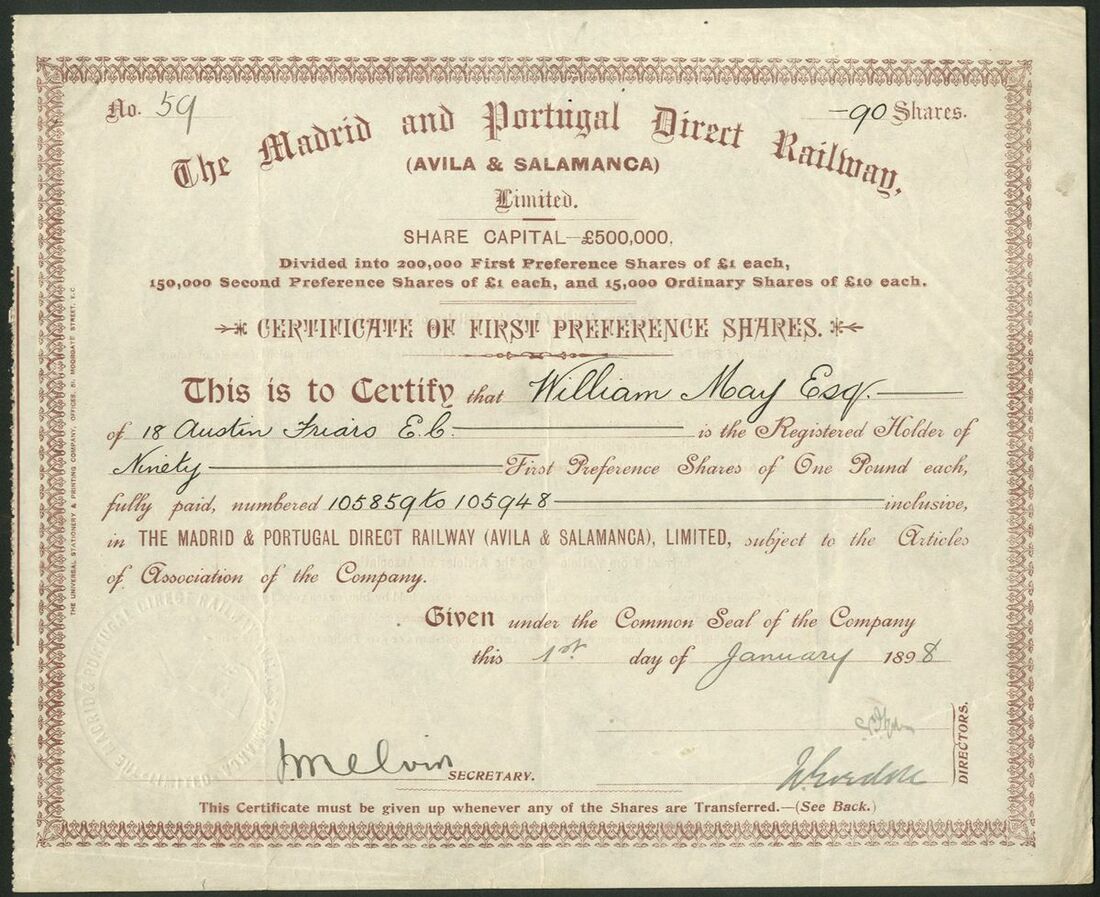 No. 59
-90 Shares.
The Madrid and Portugal Direct Railway,
(AVILA & SALAMANCA)
Limited.
SHARE CAPITAL—£500,000.
Divided into 200,000 First Preference Shares of £1 each,
150,000 Second Preference Shares of £1 each, and 15,000 Ordinary Shares of £10 each.
CERTIFICATE OF FIRST PREFERENCE SHARES.
This is to Certify that William May Esq.
of 18 Austin Friars E.C. is the Registered Holder of
Ninety First Preference Shares of One Pound each,
fully paid, numbered 105859 to 105948 inclusive,
in THE MADRID & PORTUGAL DIRECT RAILWAY (AVILA & SALAMANCA), LIMITED, subject to the Articles
of Association of the Company.
Given under the Common Seal of the Company
this 1st day of January 1898
SECRETARY.
DIRECTORS.
This Certificate must be given up whenever any of the Shares are Transferred.—(See Back.)
THE UNIVERSAL STATIONERY & PRINTING COMPANY, OFFICES, 81 MOORGATE STREET, E.C
THE MADRID & PORTUGAL DIRECT RAILWAY LIMITED